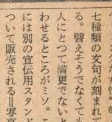 七種類の文句が刻まれ
る。譬えそうでなくて
人にとつて満更でない
わせるところがミソ。
には別の宣伝用スタン
ついて販売される＝写